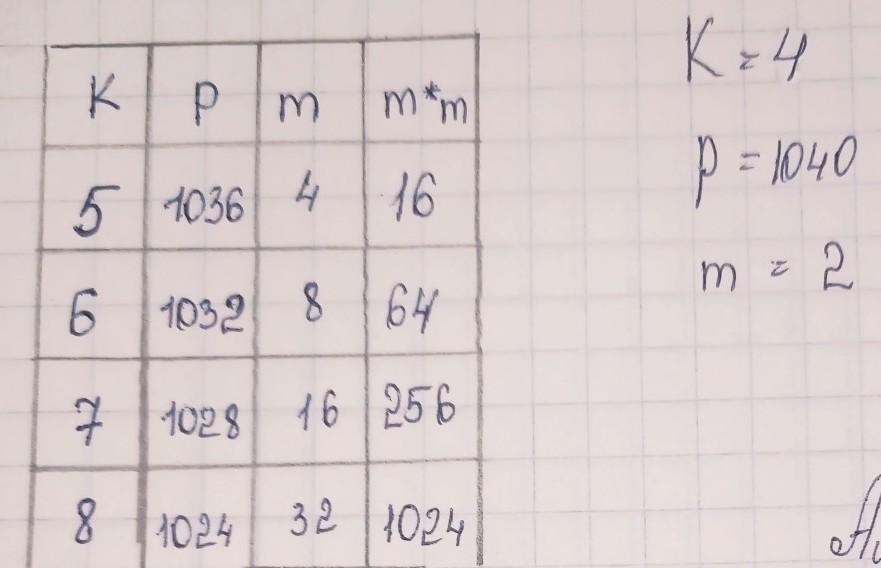 K p m m*m
5 1036 4 16
6 1032 8 64
7 1028 16 256
8 1024 32 1024
K = 4
p = 1040
m = 2